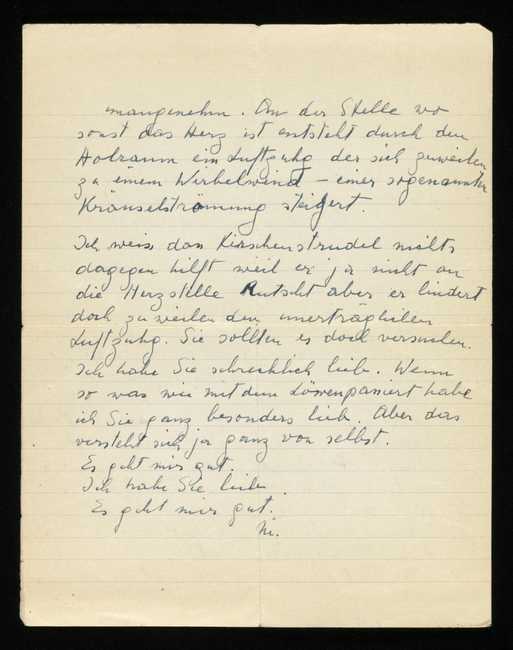 unangenehm. An der Stelle wo
sonst das Herz ist entsteht durch den
Holraum ein Luftzuhg der sich zuweilen
zu einem Wirbelwind – einer sogenannten
Kräuselströmung steigert.
Ich weiss dass Kirschenstrudel nichts
dagegen hilft weil er ja nicht an
die Herzstelle Rutscht aber er lindert
doch zu weilen den unerträglichen
Luftzuhg. Sie sollten es doch versuchen.
Ich habe Sie schrecklich lieb. Wenn
so was wie mit dem Löwenpassiert habe
ich Sie ganz besonders lieb. Aber das
versteht sich ja ganz von selbst.
Es geht mir gut.
Ich habe Sie lieb.
Es geht mir gut.